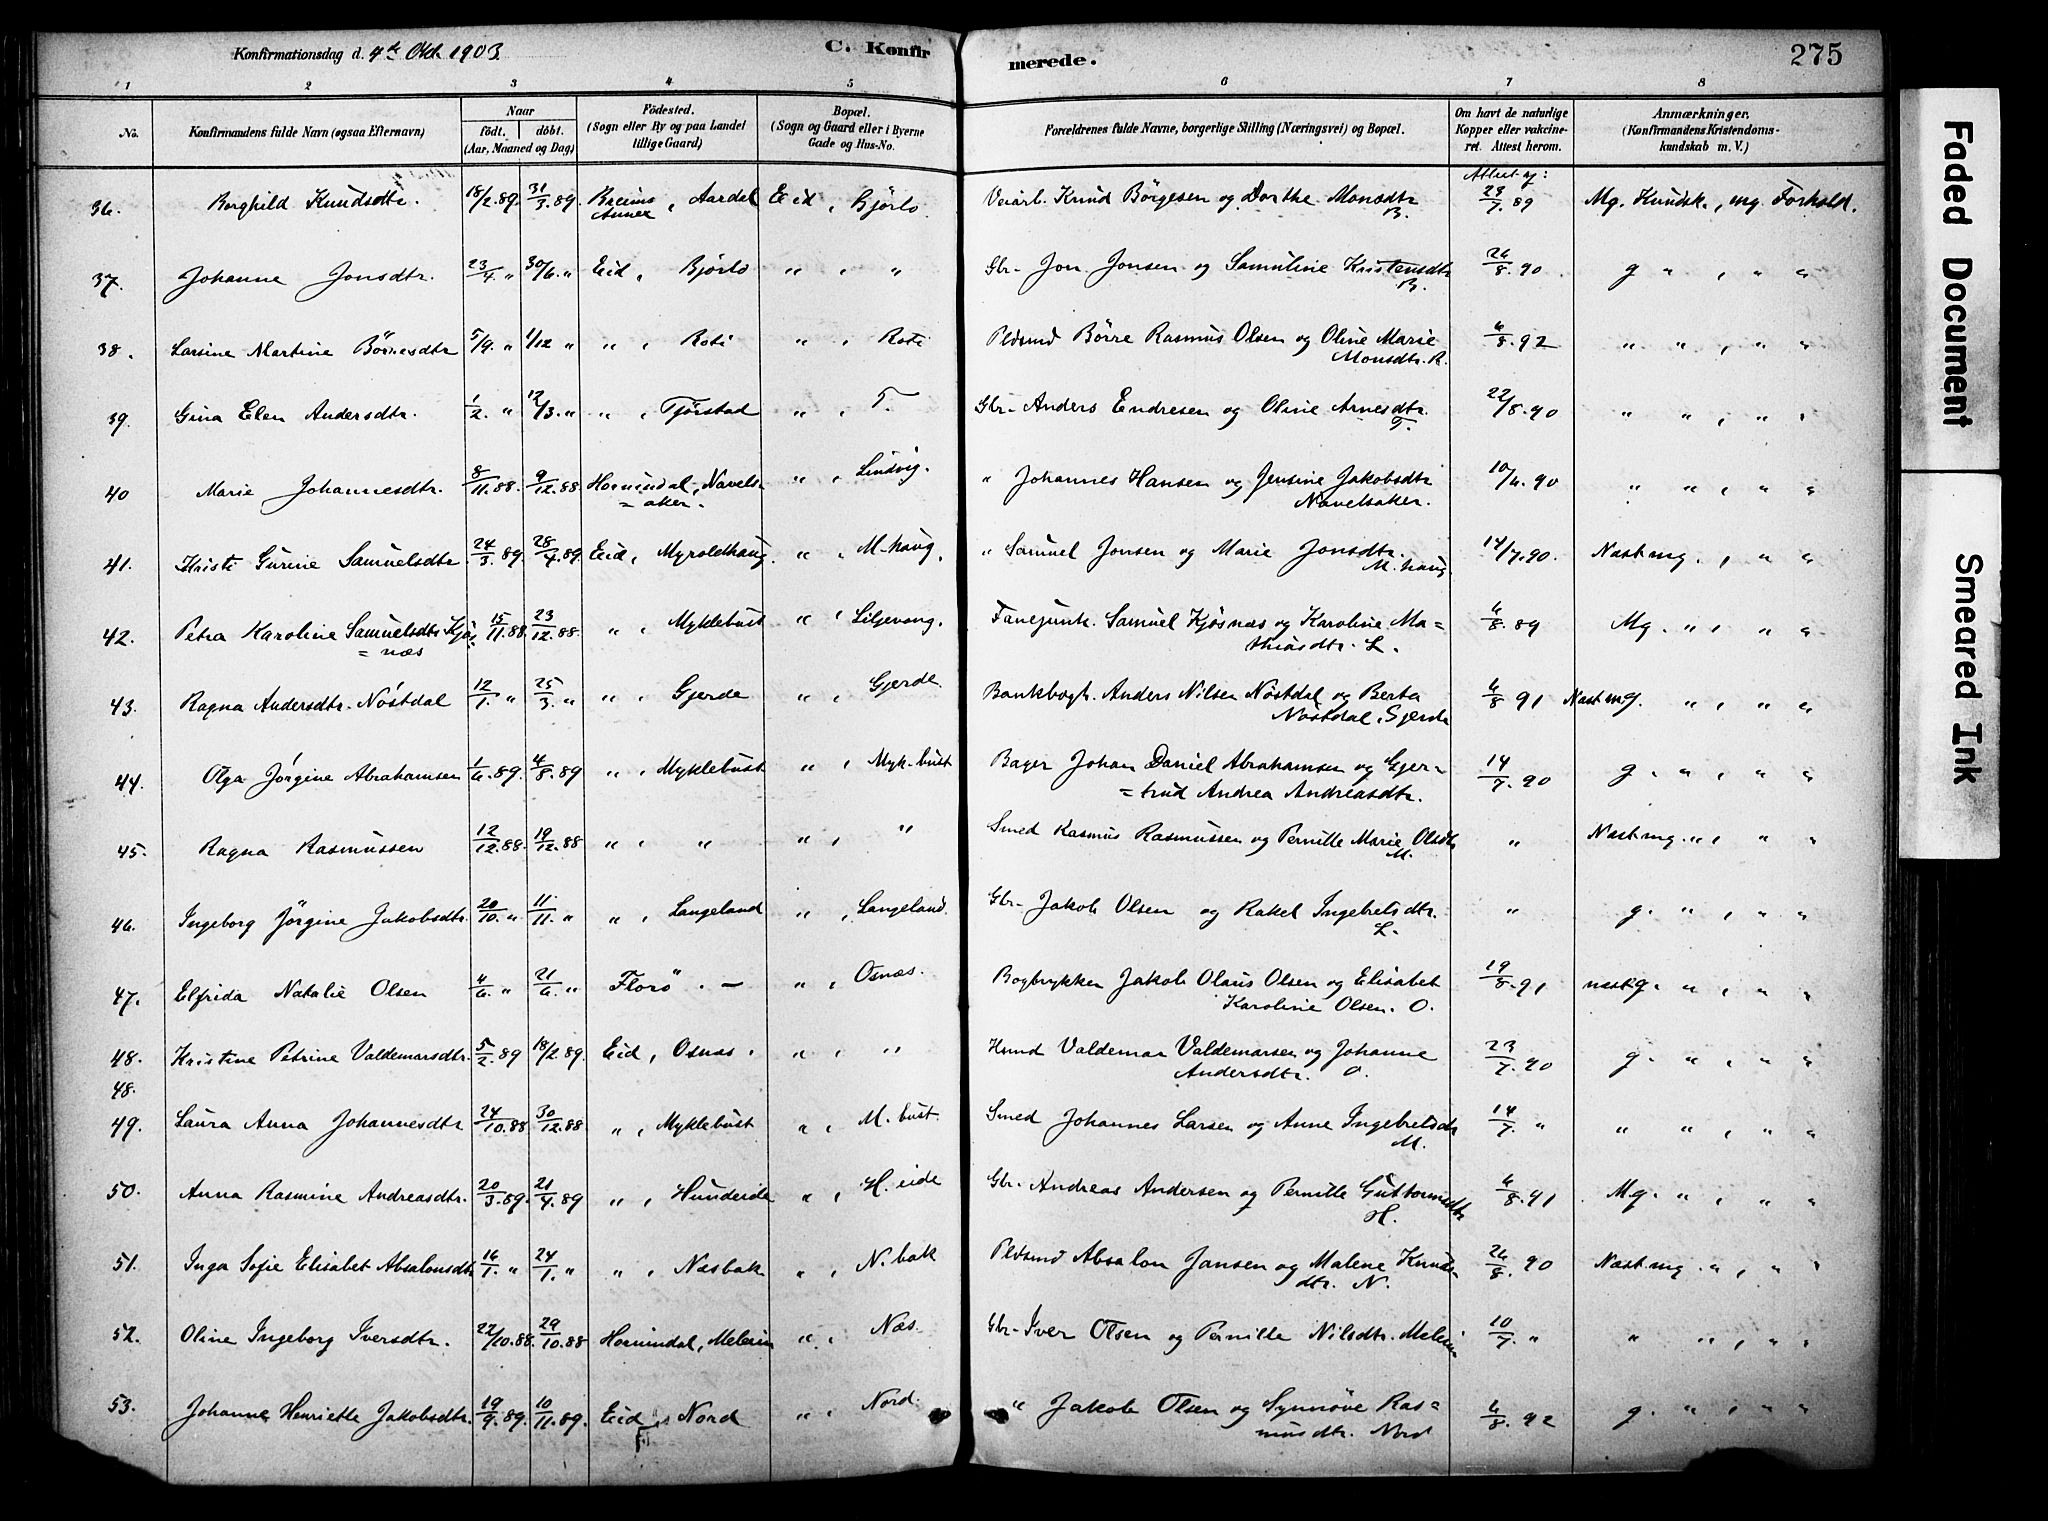 Konfirmationsdag d. 4de Okt. 1903. C. Konfirmerede. 275
1 2 3 4 5 6 7 8
No. Konfirmandens fulde Navn (ogsaa Efternavn) Naar födt. döbt. (Aar, Maaned og Dag) Födested. (Sogn eller By og paa Landet tillige Gaard) Bopæl. (Sogn og Gaard eller i Byerne Gade og Hus-No. Forældrenes fulde Navne, borgerlige Stilling (Næringsvei) og Bopæl. Om havt de naturlige Kopper eller vakcineret. Attest herom. Anmærkninger. (Konfirmandens Kristendomskundskab m. V.)
Attest af:
36. Borghild Knudsdtr. 18/2.89 31/3.89 Breims Annex, Aardal Eid, Bjørlo. Veiarb. Knud Børgesen og Dorthe Monsdtr. B. 23/7 89 Mg. Kundsk., mg. Forhold.
37. Johanne Jonsdtr. 23/4 " 30/6 " Eid, Bjørlo " , " Gbr. Jon Jonsen og Samuline Kristensdtr. B. 26/8.90 g " , " "
38. Larsine Martine Børresdtr 5/9 " 1/12 " " , Roti " , Roti Pldsmd Börre Rasmus Olsen og Oline Marie Monsdtr. R. 6/8.92 " " , " "
39. Gina Elen Andersdtr. 1/2. " 12/3. " " , Tjörstad " , T. Gbr. Anders Endresen og Oline Arnesdtr. T. 22/8.90 " " , " "
40 Marie Johannesdtr. 8/11.88. 9/12.88. Hornindal, Navels=aker. " , Lindvig. " Johannes Hansen og Jensine Jakobsdtr Navelsaker. 10/6.90 " " , " "
41. Kristi Gurine Samuelsdtr 24/3.89 28/4.89 Eid, Myroldhaug. " , M.haug. " Samuel Jonsen og Marie Jonsdtr. M.haug. 14/7.90. Næst mg. , " "
42. Petra Karoline Samuelsdtr Kjøs=næs 15/11.88. 23/12.88. " , Myklebust " , Liljevang. Fanejunk. Samuel Kjösnæs og Karoline Ma=thiasdtr. L. 6/8.89 Mg. " , " "
43. Ragna Andersdtr. Nöstdal 12/1. " 25/3. " " , Gjerde " , Gjerde. Bankbogh. Anders Nilsen Nöstdal og Berta Nöstdal, Gjerde 6/8 91 Næst mg. " , " "
44. Olga Jörgine Abrahamsen 1/6.89. 4/8.89 " , Myklebust " , Myk-bust Bager Johan Daniel Abrahamsen og Gjer=trud Andrea Andreasdtr. 14/7.90 g. " , " "
45. Ragna Rasmussen 12/12.88. 19/12.88 " , " " , " Smed Rasmus Rasmussen og Pernille Marie Olsdtr M. " Næst mg. " , " "
46. Ingeborg Jörgine Jakobsdtr. 20/10. " 11/11. " " , Langeland " , Langeland. Gbr. Jakob Olsen og Rakel Ingebretsdtr. L. " g. " , " "
47. Elfrida Natalie Olsen 4/6. " 21/6. " Florö . — " , Osnæs. Bogtrykker Jakob Olaus Olsen og Elisabet Karoline Olsen. O. 19/8.91 næst g. " , " "
48. Kristine Petrine Valdemarsdtr. 5/2.89 18/2.89. Eid, Osnæs. " , " Hmd Valdemar Valdemarsen og Johanne Andersdtr. O. 23/7.90 g. " , " "
48.
49. Laura Anna Johannesdtr 24/10.88 30/12.88 " , Myklebust " , M.bust Smed Johannes Larsen og Anne Ingebretsdtr M. 14/7. " " " , " "
50. Anna Rasmine Andreasdtr. 20/3.89. 21/4.89 " , Hundeide " , H.eide Gbr. Andreas Andersen og Pernille Guttormsdtr H. 6/8.91 Mg. " , " "
51. Inga Sofie Elisabet Absalonsdtr 16/1. " 24/1. " " , Næsbak " , N.bak Pldsmd Absalon Jansen og Malene Knuds=dtr. N. 26/8.90 Næst mg. " , "
52. Oline Ingeborg Iversdtr. 22/10.88. 29/10.88 Hornindal, Melheim " , Næs. Gbr. Iver Olsen og Pernille Nilsdtr. 10/7. " " " , " "
53. Johanne Henriette Jakobsdtr. 19/9.89. 10/11.89. Eid, Nord " , Nord. " Jakob Olsen og Synnöve Ras=musdtr. Nord 6/8.92 g. " , " "
Faded Document
Smeared Ink